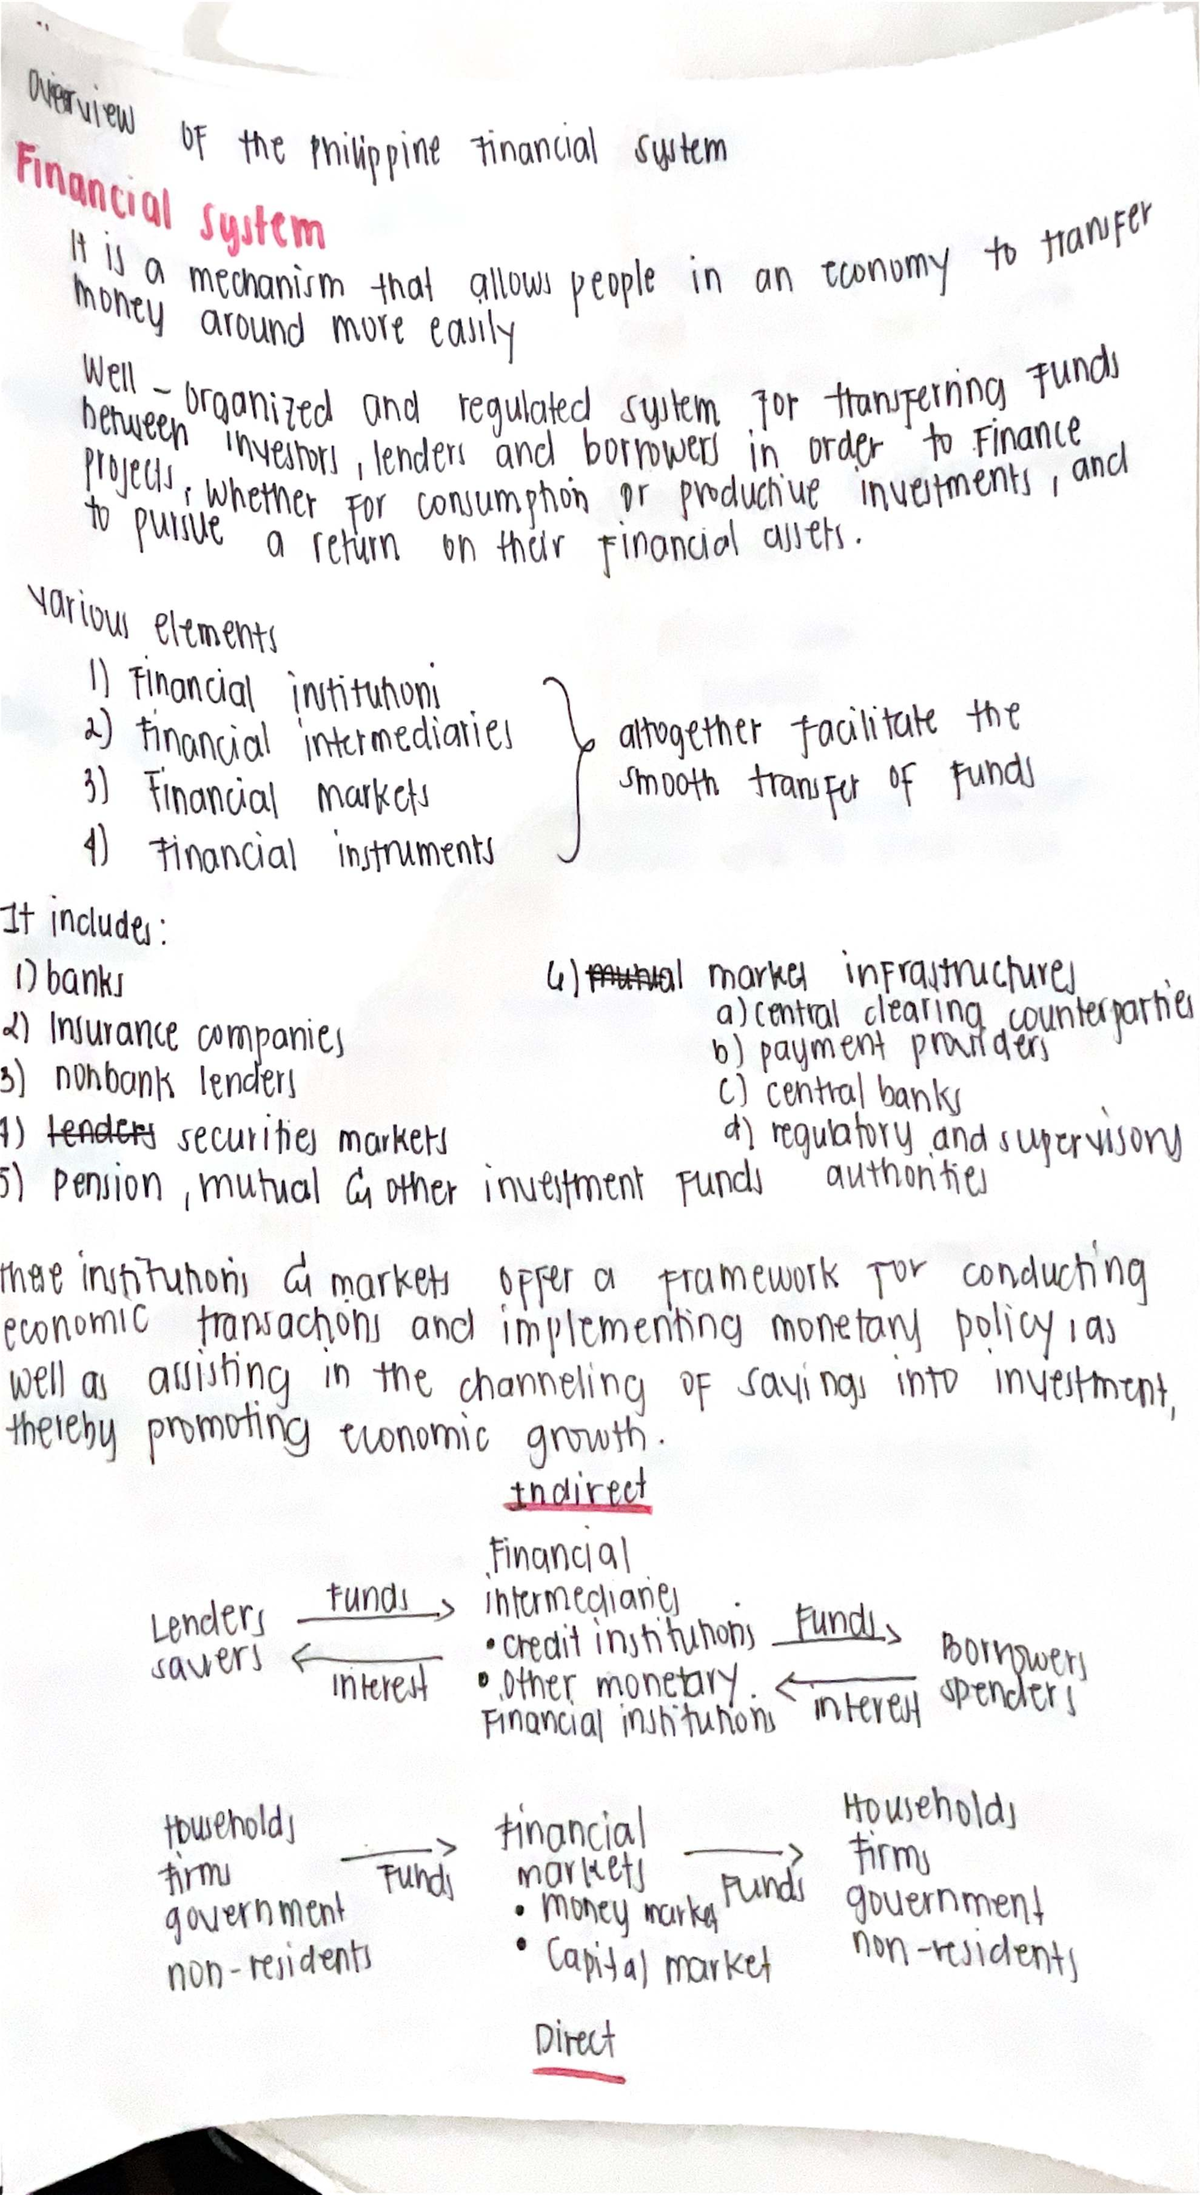 Overview of the Philippine Financial System
Financial System
It is a mechanism that allows people in an economy to transfer
money around more easily
Well-organized and regulated system for transferring funds
between investors, lenders and borrowers in order to finance
projects, whether for consumption or productive investments, and
to pursue a return on their financial assets.
Various elements
1) Financial institutions
2) Financial intermediaries
3) Financial markets
4) Financial instruments
altogether facilitate the
smooth transfer of funds
It includes:
1) banks
2) Insurance companies
3) nonbank lenders
4) lenders securities markets
5) Pension, mutual & other investment funds
6) mutual market infrastructures
a) central clearing counterparties
b) payment providers
c) central banks
d) regulatory and supervisory
authorities
these institutions & markets offer a framework for conducting
economic transactions and implementing monetary policy, as
well as assisting in the channeling of savings into investment,
thereby promoting economic growth.
Indirect
Lenders
savers
Funds
interest
Financial
intermediaries
• credit institutions
• Other monetary
Financial institutions
Funds
interest
Borrowers
spenders
Households
firms
government
non-residents
Funds
Financial
markets
• Money market
• Capital market
Funds
Households
firms
government
non-residents
Direct